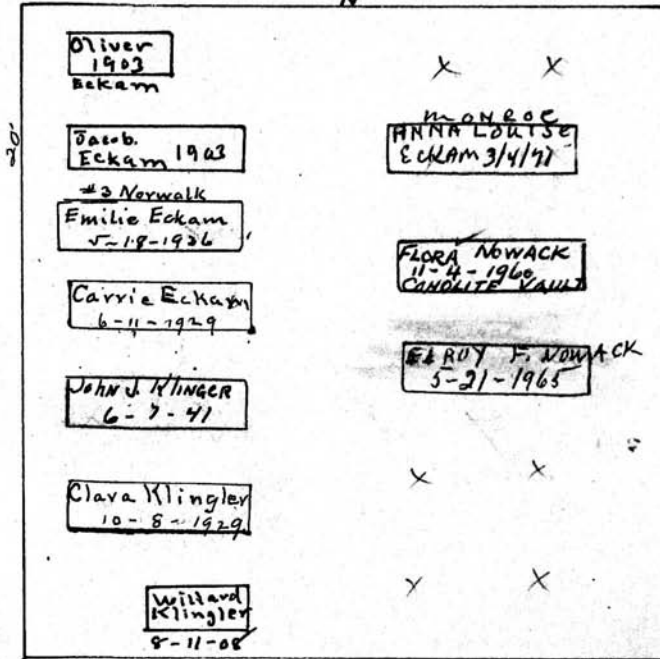 N
20'
Oliver
1903
Eckam
Jacob.
Eckam 1903
#3 Norwalk
Emilie Eckam
5-18-1926
Carrie Eckam
6-11-1929
John J. Klinger
6-7-41
Clara Klingler
10-8-1929
Willard
Klingler
8-11-08
X X
MONROE
ANNA LOUISE
ECKAM 3/4/71
FLORA NOWACK
11-4-1960
CONOLITE VAULT
ELROY F. NOWACK
5-21-1965
X X
X X